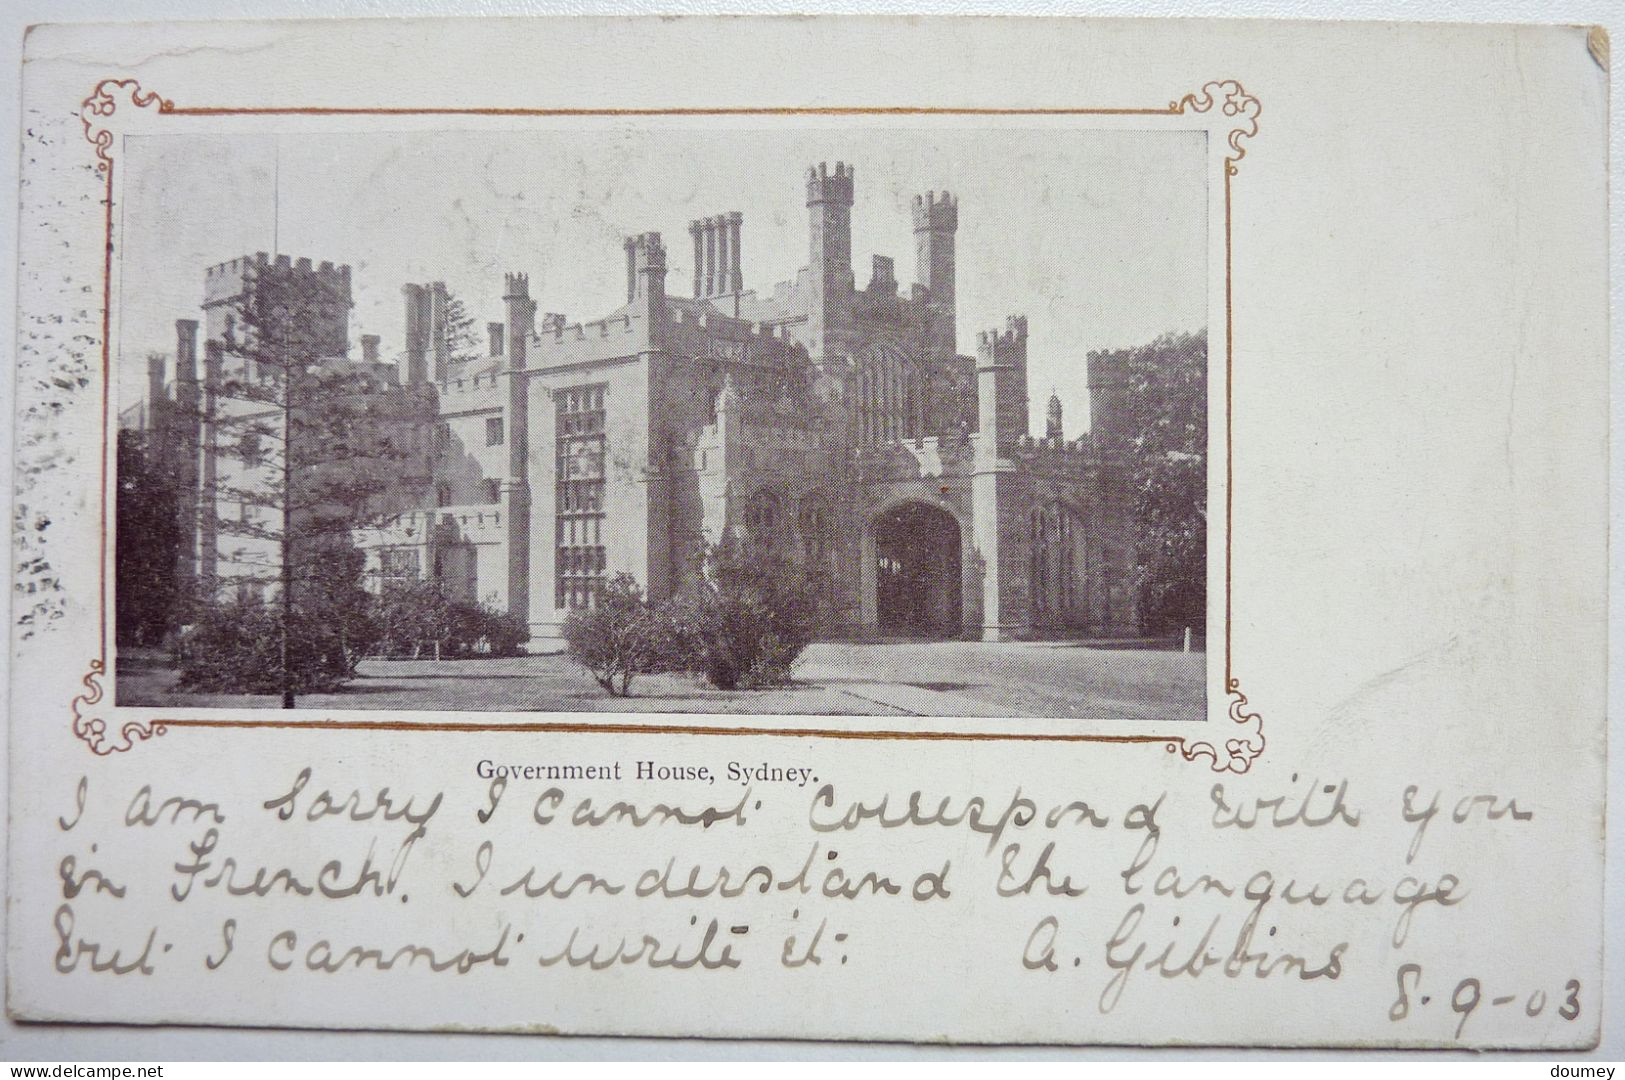 Government House, Sydney.
I am sorry I cannot correspond with you
in French. I understand the language
but I cannot write it. A. Gibbins
8-9-03
delcampe.net
doumey